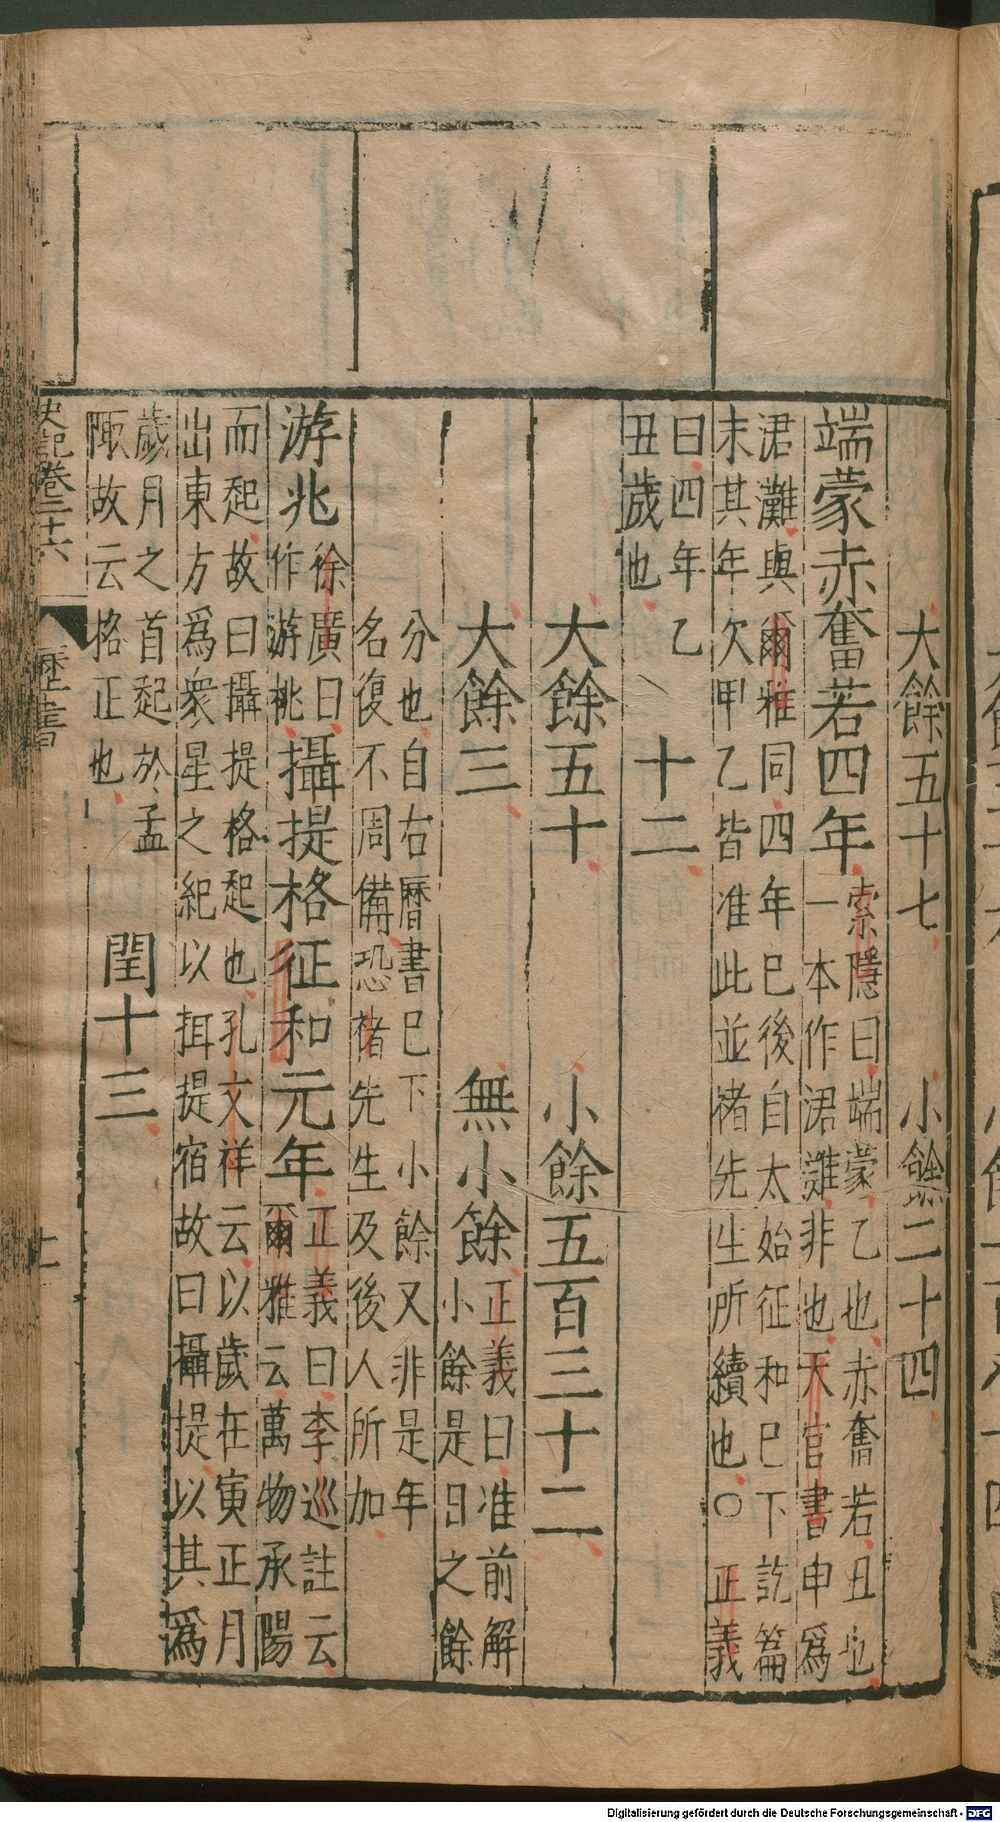 大餘五十七　小餘二十四
端蒙赤奮若四年
索隱曰端蒙乙也赤奮若丑也
一本作涒灘非也天官書申爲
涒灘與爾雅同四年巳後自太始征和巳下訖篇
末其年欠甲乙皆准此並褚先生所續也○正義
曰四年乙
丑歲也
十二
大餘五十　小餘五百三十二
大餘三　無小餘
正義曰准前解
小餘是日之餘
分也自右曆書巳下小餘又非是年
名復不周備恐褚先生及後人所加
游兆
徐廣曰
作游桃
攝提格征和元年
正義曰李巡註云
爾雅云萬物承陽
而起故曰攝提格起也孔文祥云以歲在寅正月
出東方爲衆星之紀以挕提宿故曰攝提以其爲
歲月之首起於孟
陬故云格正也
閏十三
史記卷二十六　歷書
Digitalisierung gefördert durch die Deutsche Forschungsgemeinschaft - DFG